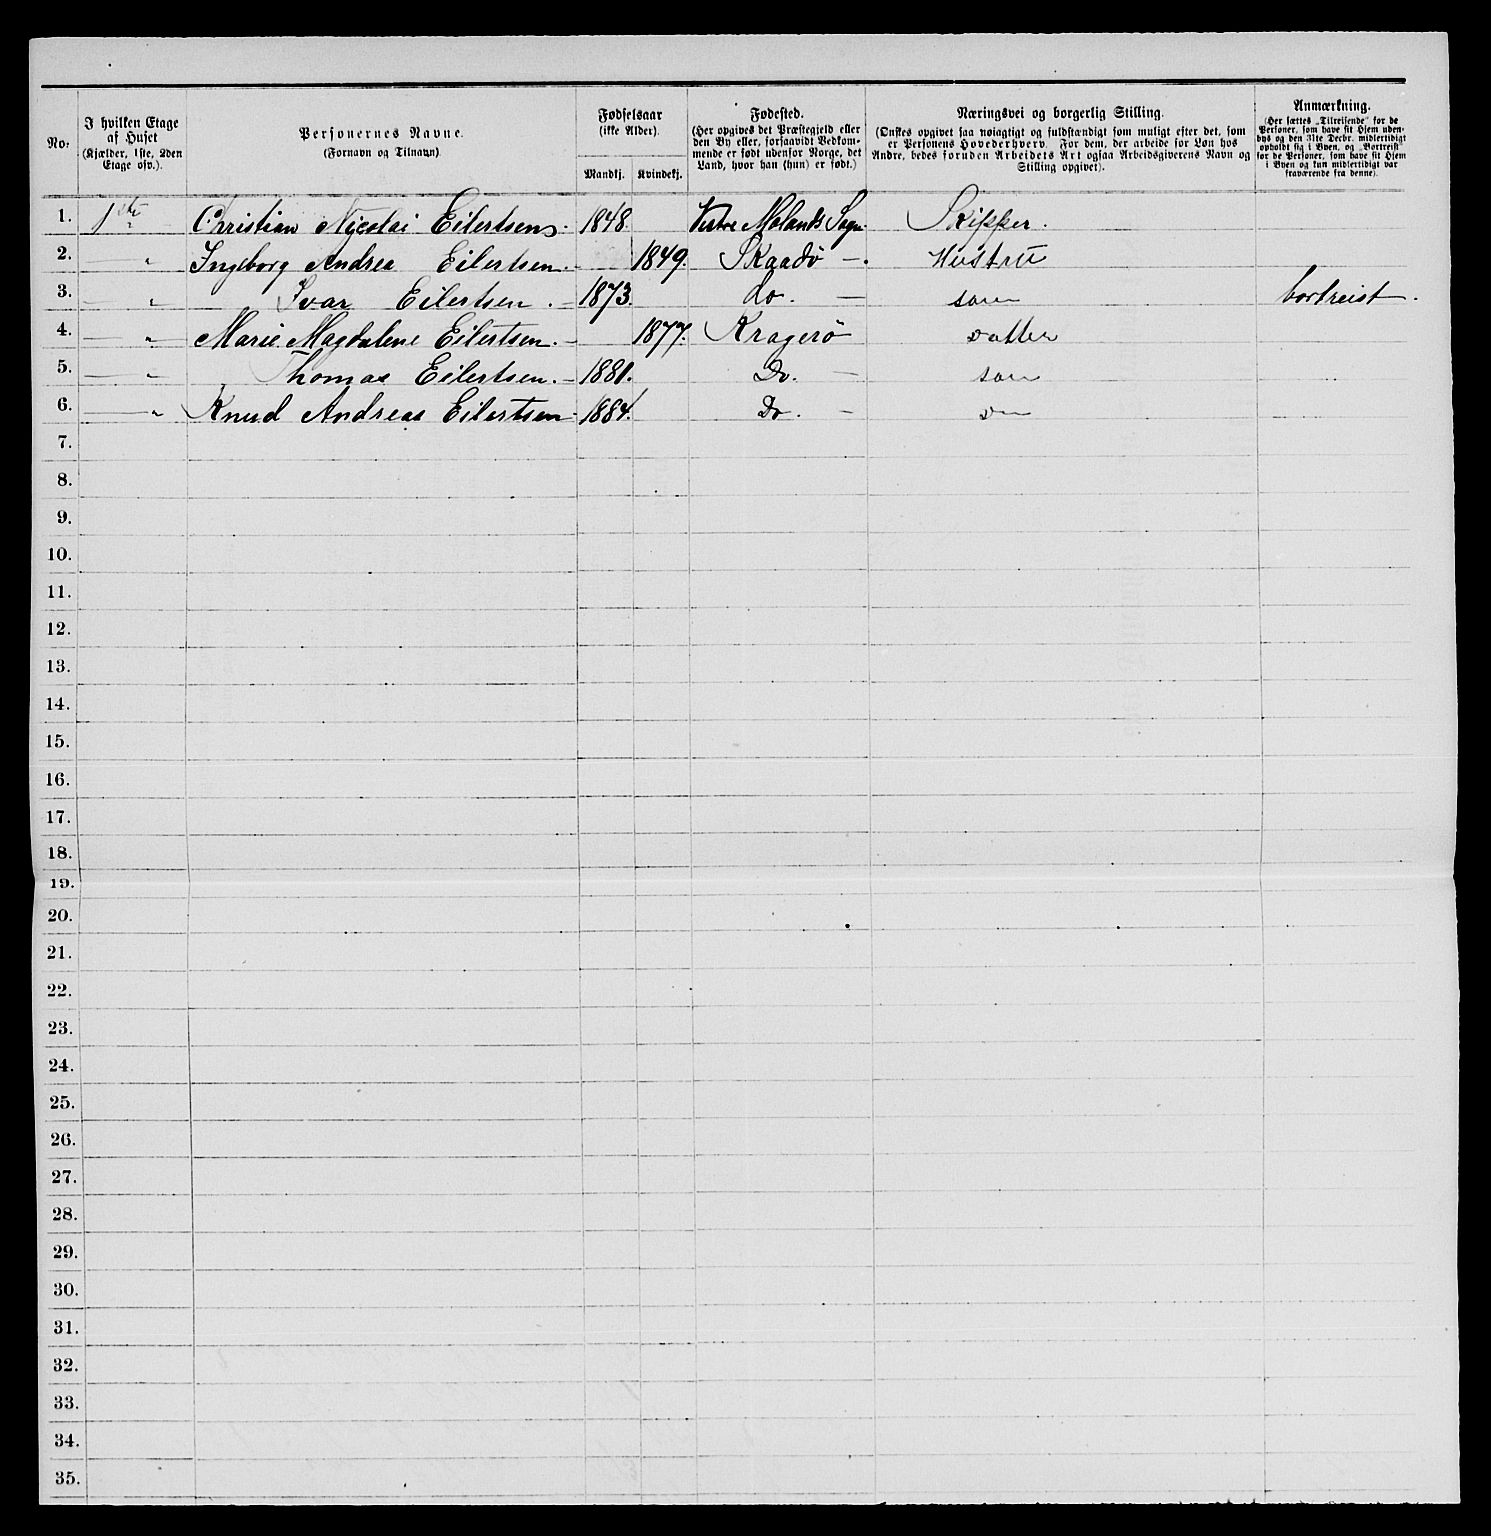 No: I hvilken Etage af Huset (Kjælder, 1ste, 2den Etage osv.). Personernes Navne. (Fornavn og Tilnavn). Fødselsaar (ikke Alder). Mandkj. Kvindekj. Fødested. (Her opgives det Præstegjeld eller den By eller, forsaavidt Vedkommende er født udenfor Norge, det Land, hvor han (hun) er født.) Næringsvei og borgerlig Stilling. (Ønskes opgivet saa nøiagtigt og fuldstændigt som muligt efter det, som er Personens Hovederhverv. For dem, der arbeide for Løn hos Andre, bedes foruden Arbeidets Art ogsaa Arbeidsgiverens Navn og Stilling opgivet). Anmærkning. (Her sættes „Tilreisende" for de Personer, som have sit Hjem udenbys og den 31te Decbr. midlertidigt opholdt sig i Byen, og „Bortreist" for de Personer, som have sit Hjem i Byen og kun midlertidigt var fraværende fra denne).
1. 1ste Christian Nicolai Eilertsen. 1848. Vestre Molands Sogn Skipper.
2. — " Ingeborg Andrea Eilertsen. 1849. Skaadø —. Hustru
3. — " Ivar Eilertsen. 1873. do. — søn bortreist.
4. — " Marie Magdalene Eilertsen. 1877. Kragerø datter
5. — " Thomas Eilertsen. 1881. Do. — søn
6. — " Knud Andreas Eilertsen 1884. Do. —
7.
8.
9.
10.
11.
12.
13.
14.
15.
16.
17.
18.
19.
20.
21.
22.
23.
24.
25.
26.
27.
28.
29.
30.
31.
32.
33.
34.
35.